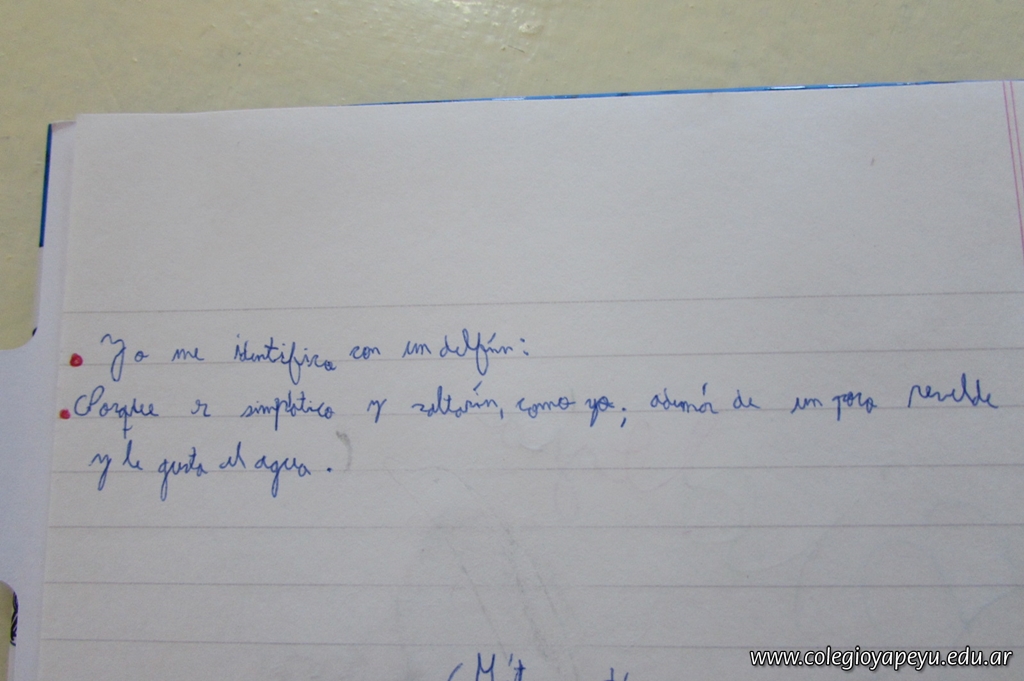 Yo me identifico con un delfín:
Porque es simpático y saltarín, como yo; además de un poco revelde
y le gusta el agua.
www.colegioyapeyu.edu.ar